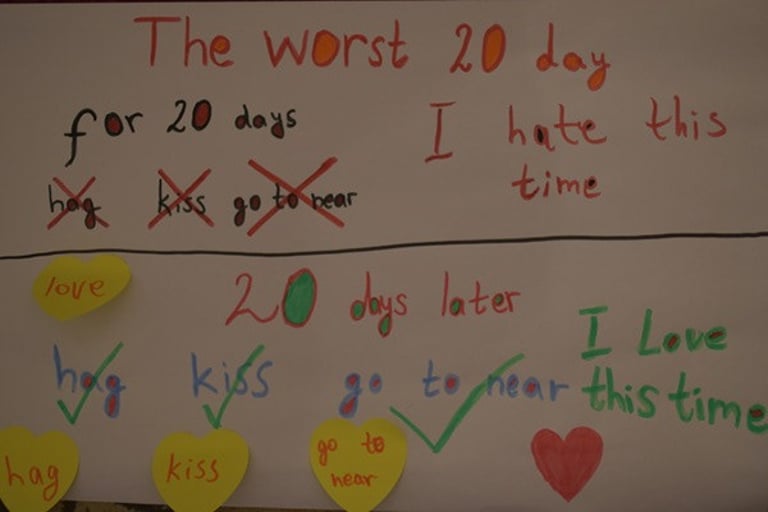 The worst 20 day
for 20 days
I hate this
time
hag kiss go to near
love
20 days later
I Love
this time
hag kiss go to near
hag
kiss
go to
near